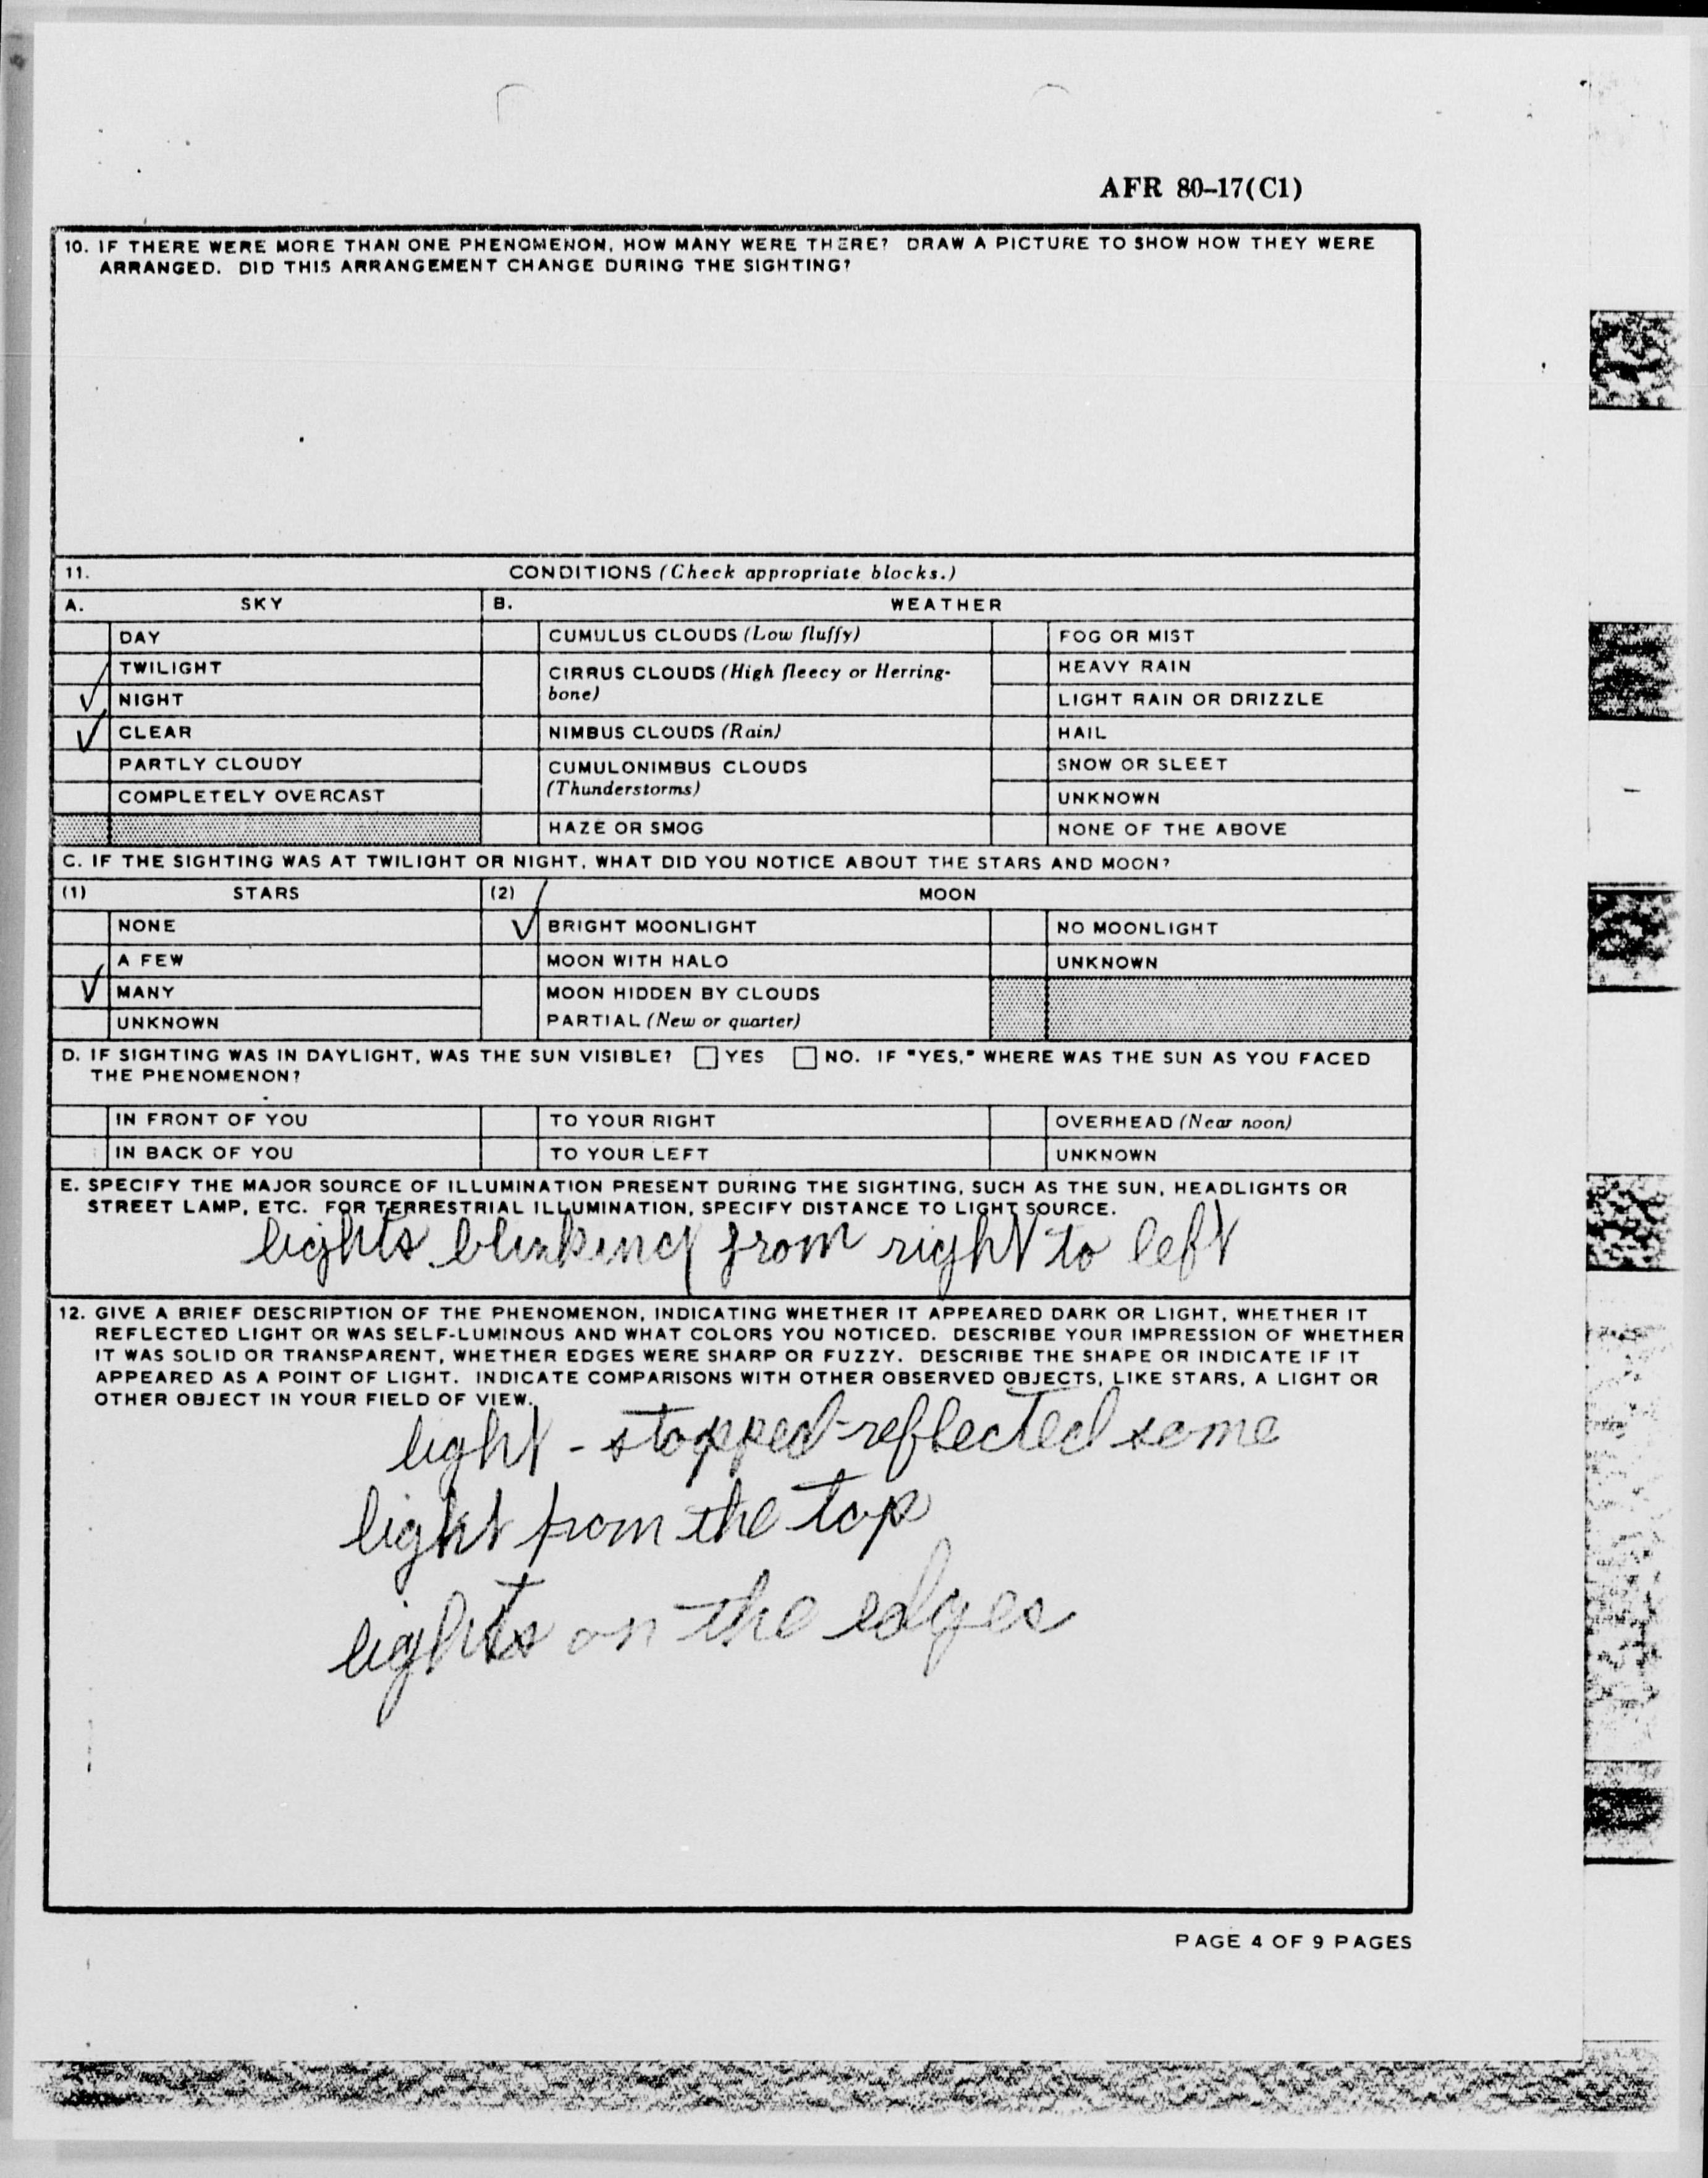 AFR 80-17(C1)
10. IF THERE WERE MORE THAN ONE PHENOMENON, HOW MANY WERE THERE? DRAW A PICTURE TO SHOW HOW THEY WERE
ARRANGED. DID THIS ARRANGEMENT CHANGE DURING THE SIGHTING?
11. CONDITIONS (Check appropriate blocks.)
A. SKY B. WEATHER
DAY CUMULUS CLOUDS (Low fluffy) FOG OR MIST
TWILIGHT CIRRUS CLOUDS (High fleecy or Herring- HEAVY RAIN
✓ NIGHT bone) LIGHT RAIN OR DRIZZLE
✓ CLEAR NIMBUS CLOUDS (Rain) HAIL
PARTLY CLOUDY CUMULONIMBUS CLOUDS SNOW OR SLEET
COMPLETELY OVERCAST (Thunderstorms) UNKNOWN
HAZE OR SMOG NONE OF THE ABOVE
C. IF THE SIGHTING WAS AT TWILIGHT OR NIGHT, WHAT DID YOU NOTICE ABOUT THE STARS AND MOON?
(1) STARS (2) MOON
NONE ✓ BRIGHT MOONLIGHT NO MOONLIGHT
A FEW MOON WITH HALO UNKNOWN
✓ MANY MOON HIDDEN BY CLOUDS
UNKNOWN PARTIAL (New or quarter)
D. IF SIGHTING WAS IN DAYLIGHT, WAS THE SUN VISIBLE? ☐ YES ☐ NO. IF "YES," WHERE WAS THE SUN AS YOU FACED
THE PHENOMENON?
IN FRONT OF YOU TO YOUR RIGHT OVERHEAD (Near noon)
IN BACK OF YOU TO YOUR LEFT UNKNOWN
E. SPECIFY THE MAJOR SOURCE OF ILLUMINATION PRESENT DURING THE SIGHTING, SUCH AS THE SUN, HEADLIGHTS OR
STREET LAMP, ETC. FOR TERRESTRIAL ILLUMINATION, SPECIFY DISTANCE TO LIGHT SOURCE.
lights blinking from right to left
12. GIVE A BRIEF DESCRIPTION OF THE PHENOMENON, INDICATING WHETHER IT APPEARED DARK OR LIGHT, WHETHER IT
REFLECTED LIGHT OR WAS SELF-LUMINOUS AND WHAT COLORS YOU NOTICED. DESCRIBE YOUR IMPRESSION OF WHETHER
IT WAS SOLID OR TRANSPARENT, WHETHER EDGES WERE SHARP OR FUZZY. DESCRIBE THE SHAPE OR INDICATE IF IT
APPEARED AS A POINT OF LIGHT. INDICATE COMPARISONS WITH OTHER OBSERVED OBJECTS, LIKE STARS, A LIGHT OR
OTHER OBJECT IN YOUR FIELD OF VIEW.
light - stopped - reflected some
light from the top
lights on the edges
PAGE 4 OF 9 PAGES